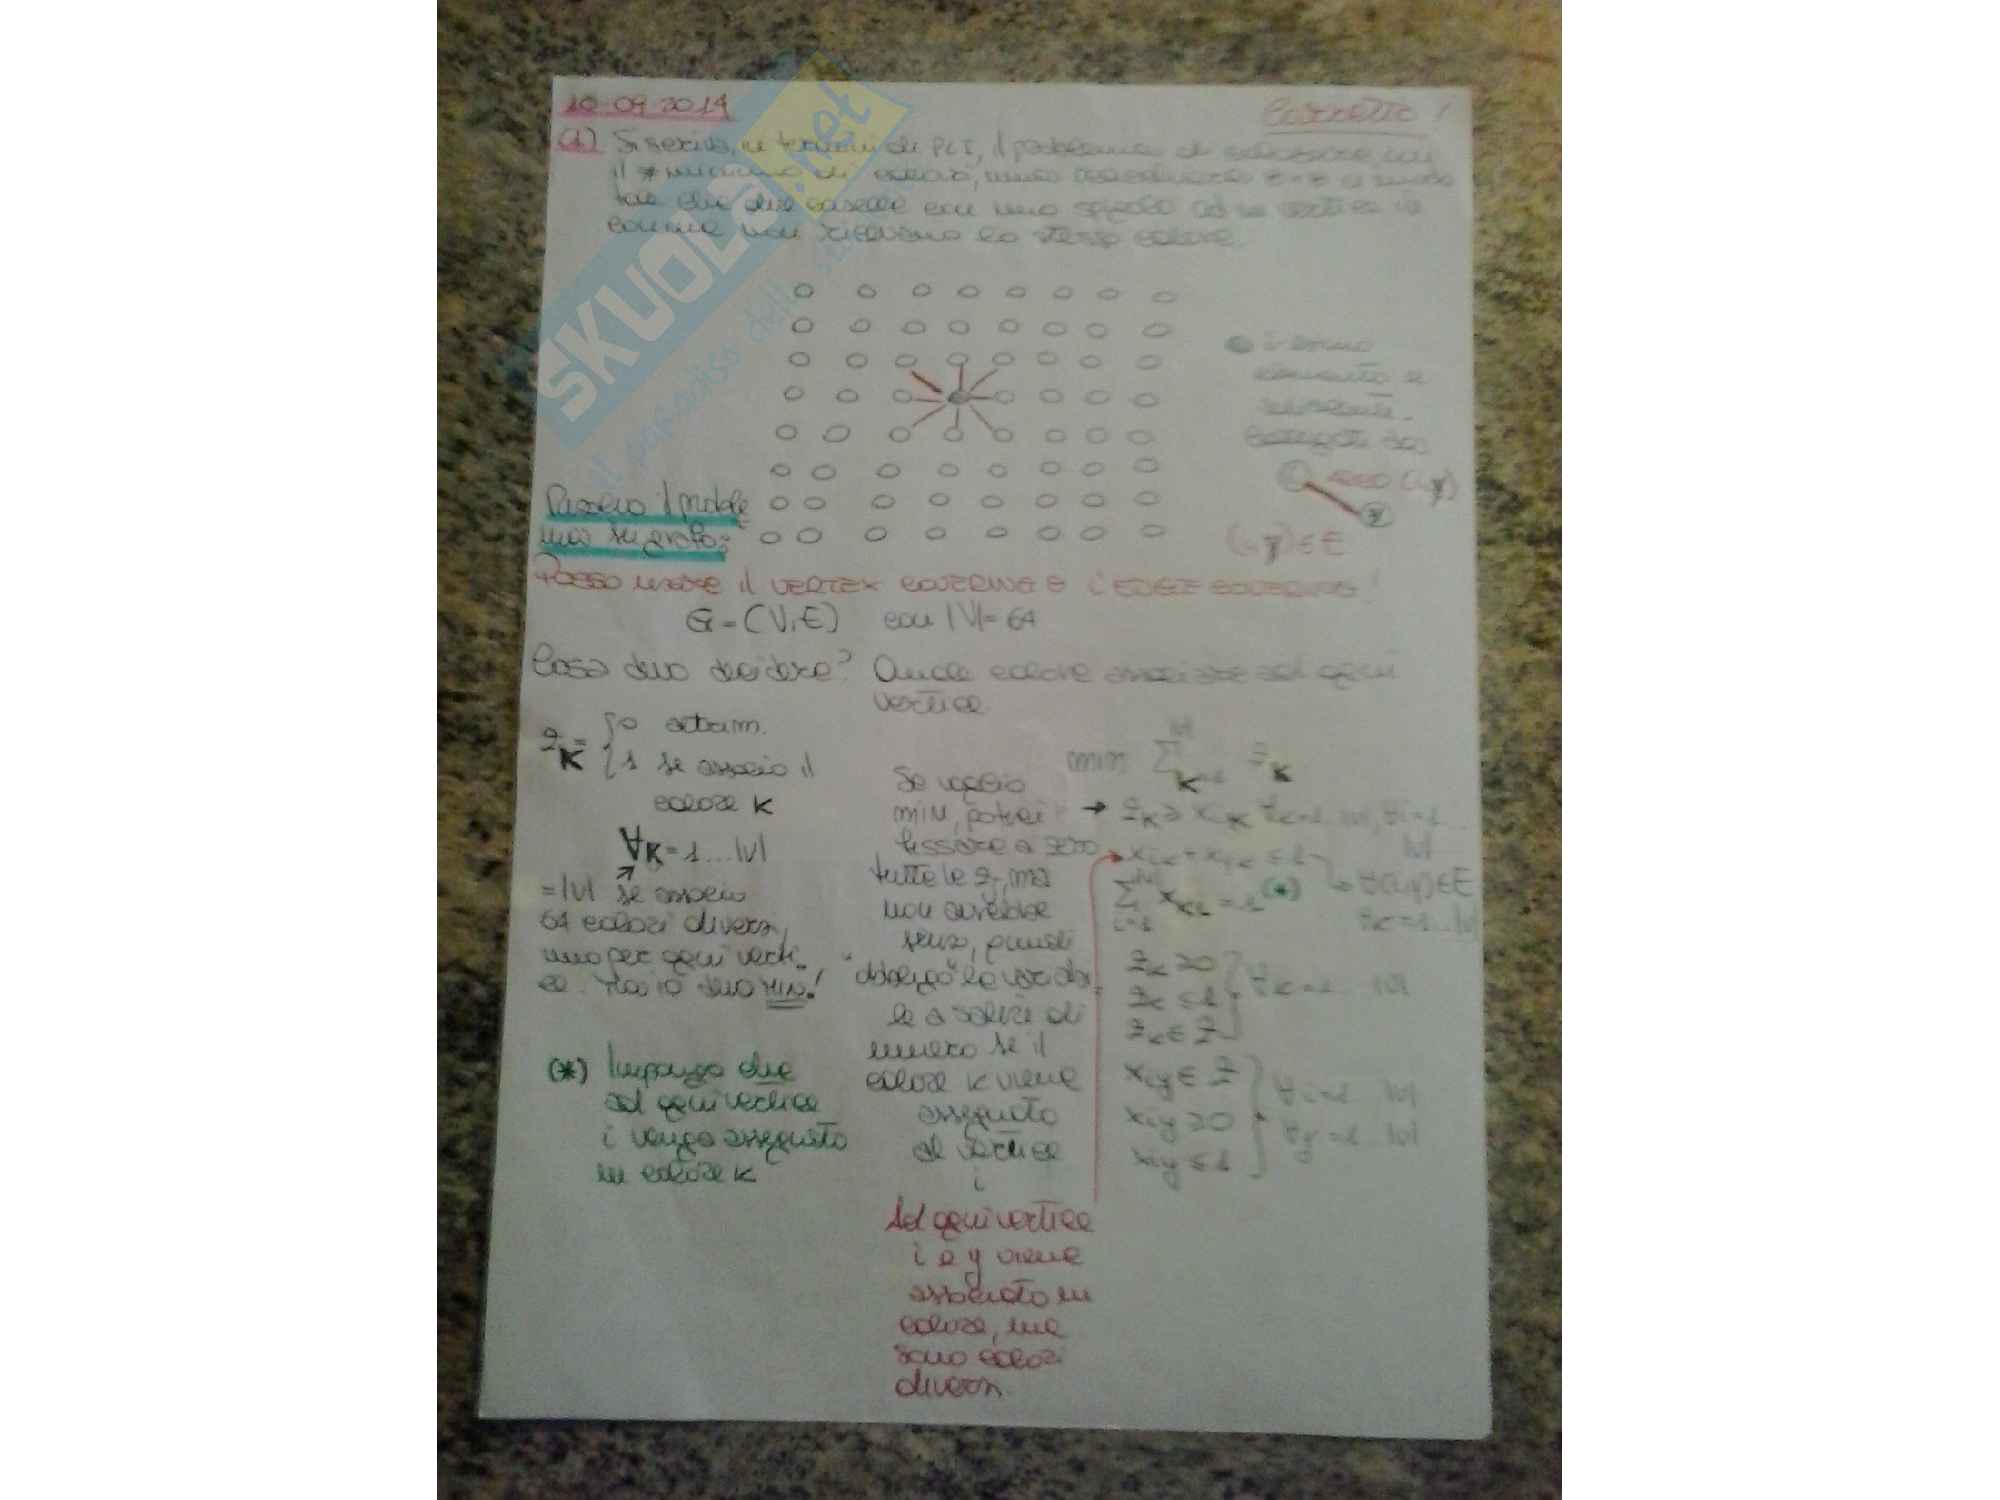 10-09-2014
Corretto !
(1) Si scriva, in termini di PLI, il problema di colorare, con
il # minimo di colori, una scacchiera di modo
tale che due caselle con uno spigolo od un vertice in
comune non ricevano lo stesso colore.
i-esimo
elemento è
adiacente
(i,y)
(i,y) ∈ E
Risolvo il proble
ma su grafo:
Posso usare il VERTEX COVERING e l'EDGE COVERING!
G = (V, E) con |V| = 64
Cosa devo decidere? Quale colore associare ad ogni
vertice.
z_K = { 0 altrim.
1 se associo il
colore K
∀K = 1...|V|
= |V| se associo
64 colori diversi,
uno per ogni verti-
ce. Ma io devo MIN!
(*) Impongo che
ad ogni vertice
i venga assegnato
un colore K
Se voglio
min, potrei
fissare a zero
tutte le z_j, ma
non avrebbe
senso, quindi
"obbligo" la variabi
le a salire di
numero se il
colore K viene
assegnato
al vertice
i
Ad ogni vertice
i e y viene
associato un
colore, ma
sono colori
diversi.
min Σ_{K=1}^{|V|} z_K
→ z_K ≥ x_iK ∀K=1...|V|, ∀i=1...
|V|
x_ik + x_yk ≤ 1 → ∀(i,y) ∈ E
∀K=1...|V|
Σ_{i=1}^{|V|} x_Ki = 1 (*)
z_K ≥ 0
z_K ≤ 1 } ∀K=1...|V|
z_K ∈ Z
x_iy ∈ Z ∀i=1...|V|
x_iy ≥ 0 ∀y=1...|V|
x_iy ≤ 1
SKUOLA.net
il paradiso dello studente